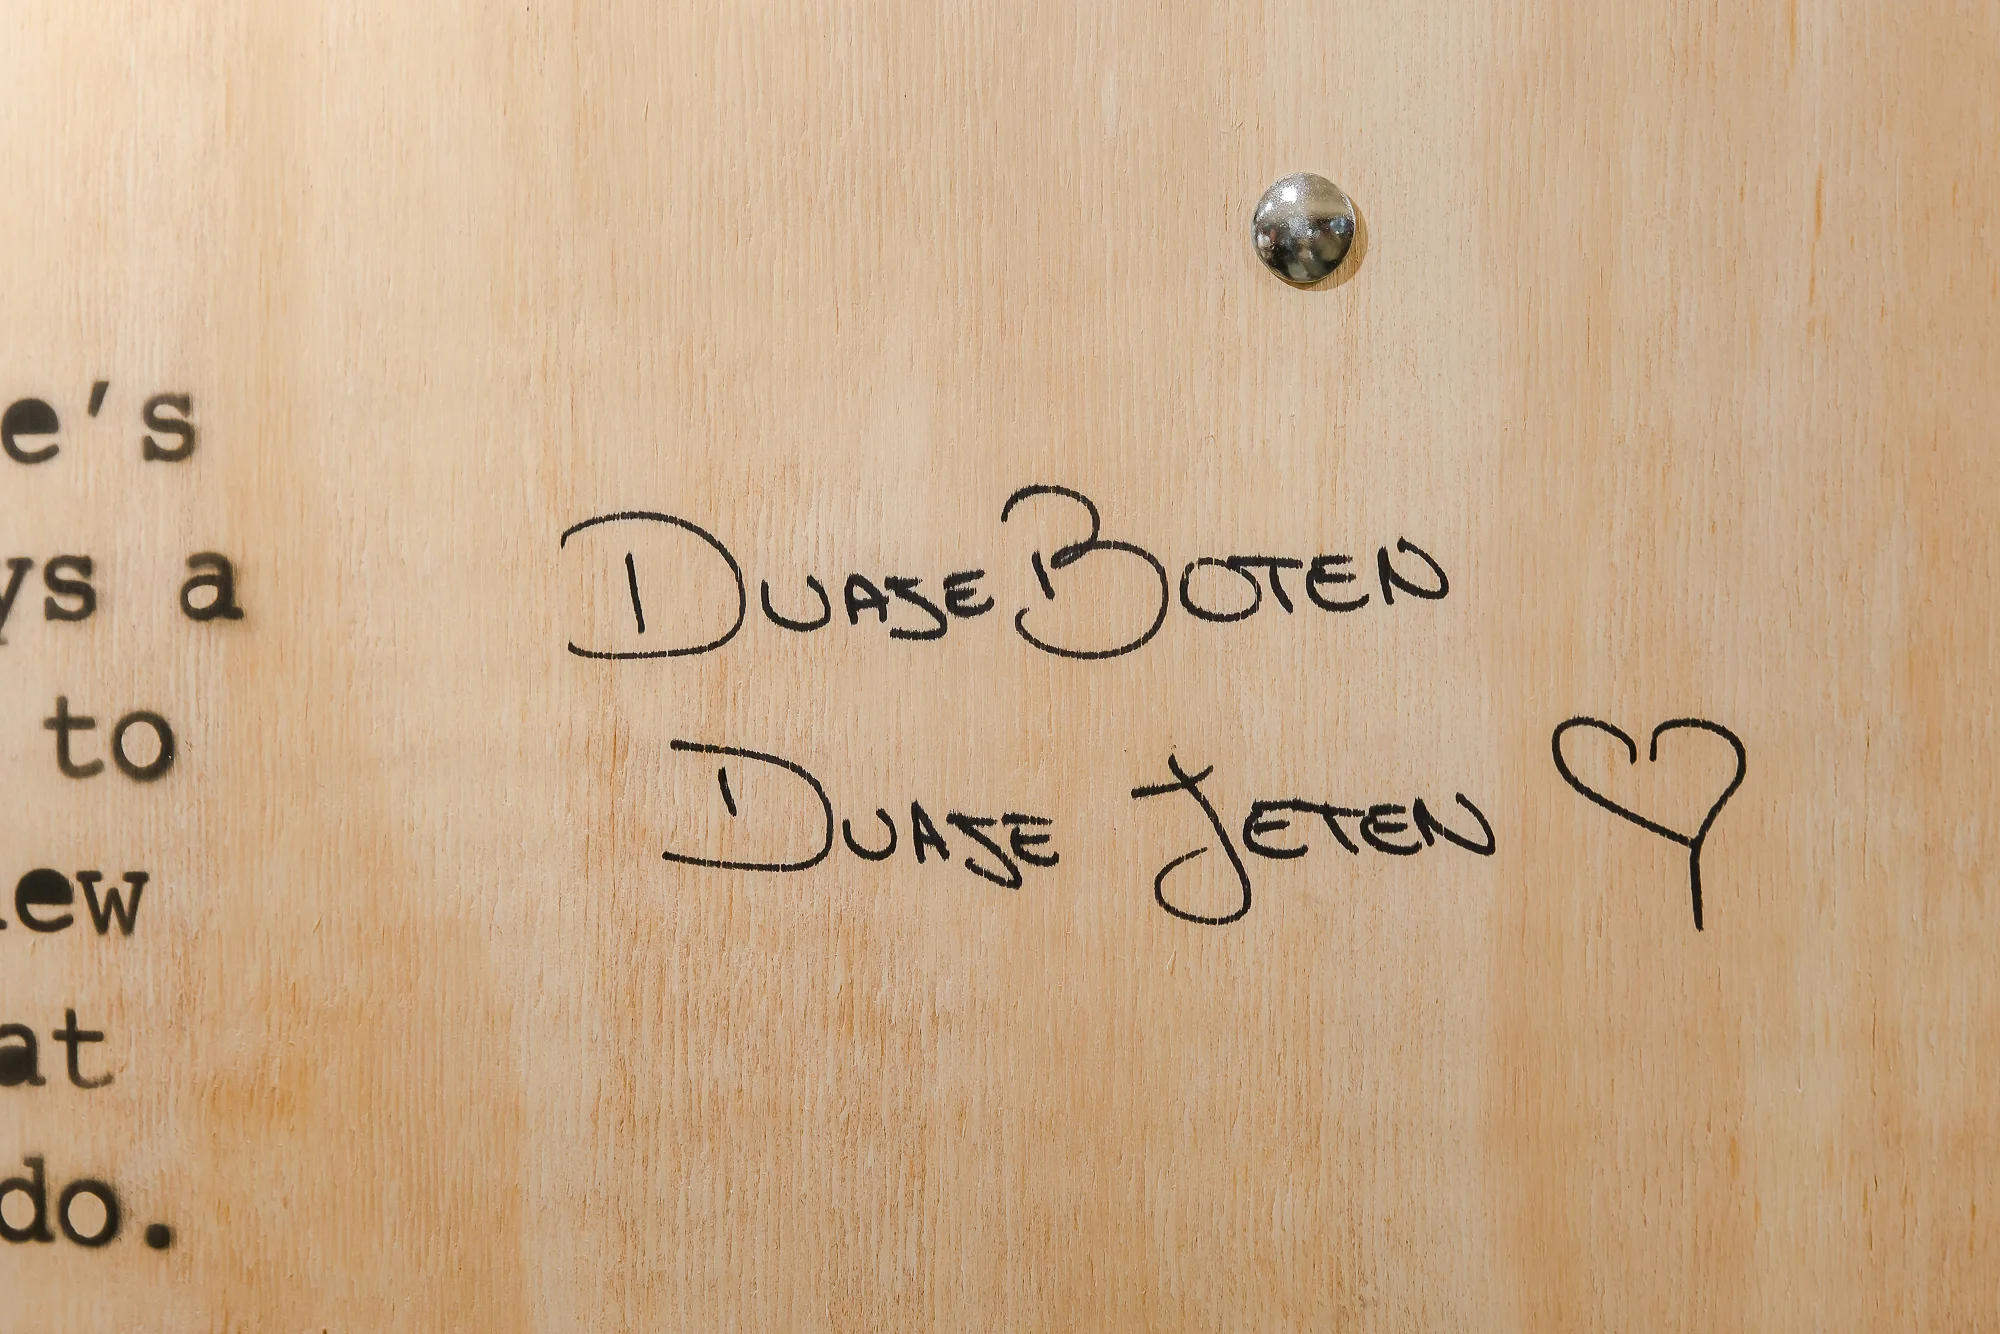 e's
ys a
to
ew
at
do.
DUAJE BOTEN
DUAJE JETEN ♡